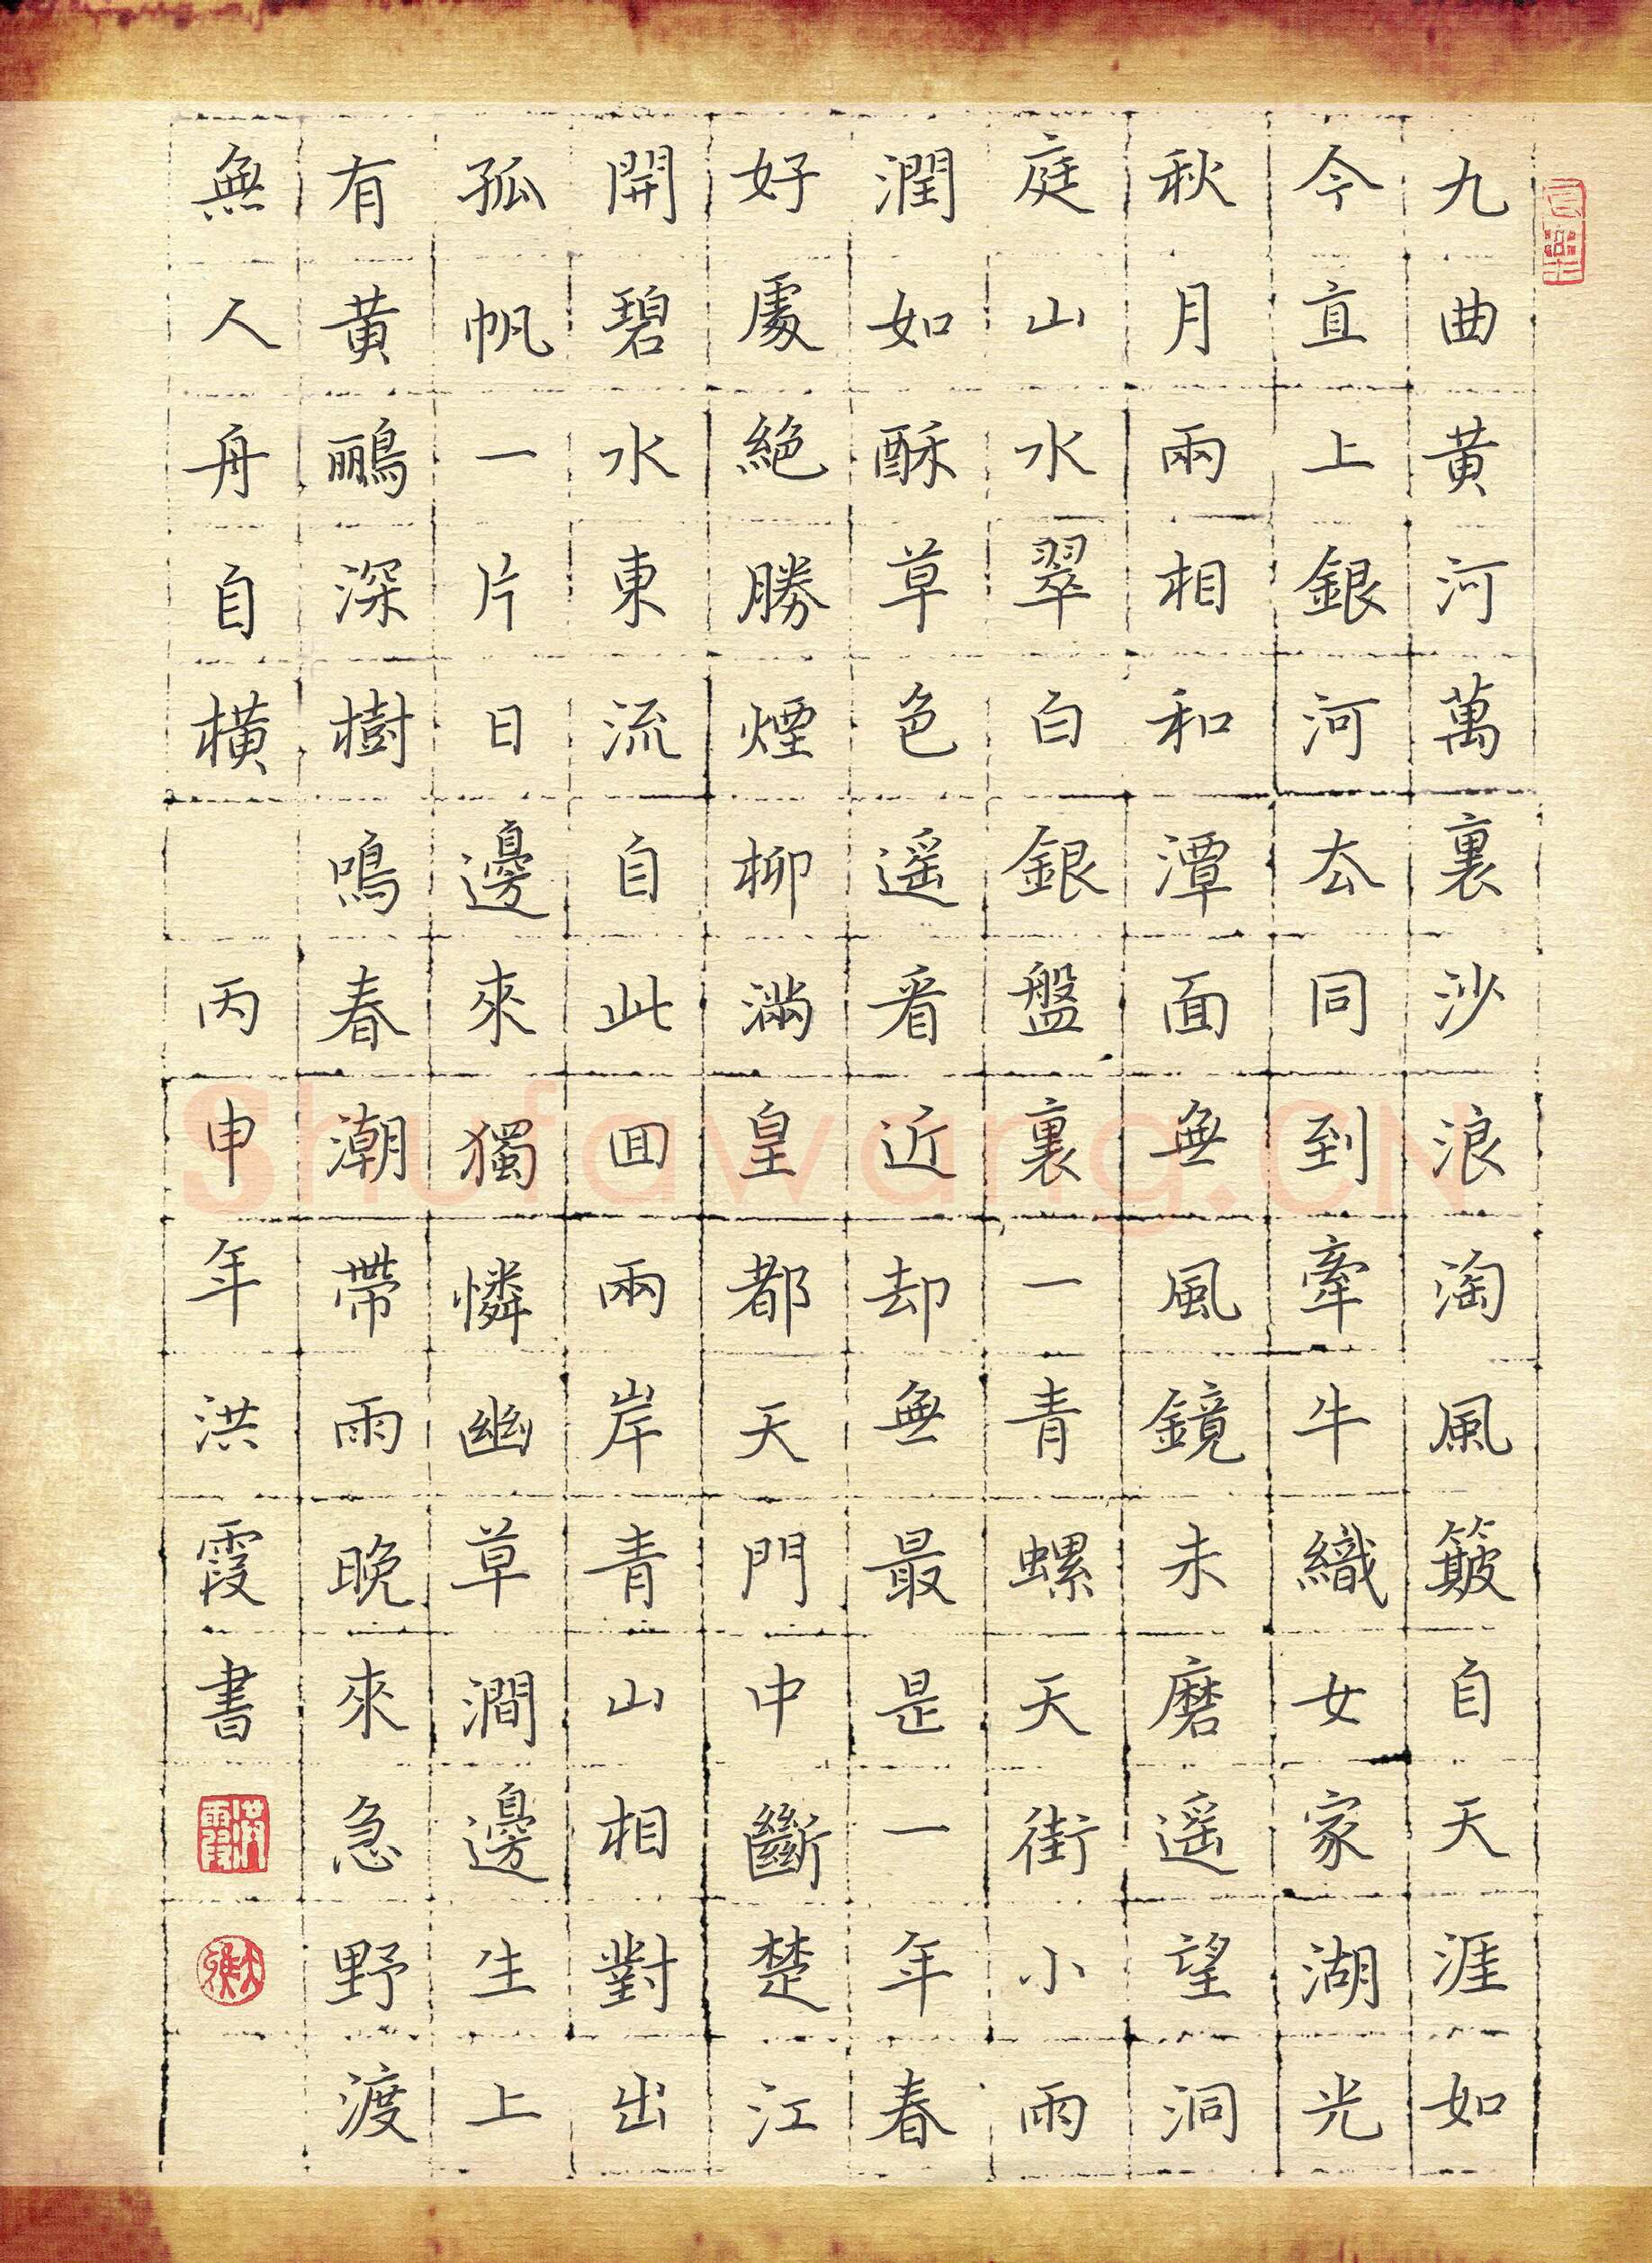 九曲黄河萬裏沙浪淘風簸自天涯如
今直上銀河厺同到牽牛織女家湖光
秋月兩相和潭面無風鏡未磨遥望洞
庭山水翠白銀盤裏一青螺天街小雨
潤如酥草色遥看近却無最是一年春
好處絕勝煙柳滿皇都天門中斷楚江
開碧水東流自此囬兩岸青山相對出
孤帆一片日邊來獨憐幽草澗邊生上
有黄鸝深樹鳴春潮帶雨晚來急野渡
無人舟自橫 丙申年洪霞書
洪霞
Shufawang.CN